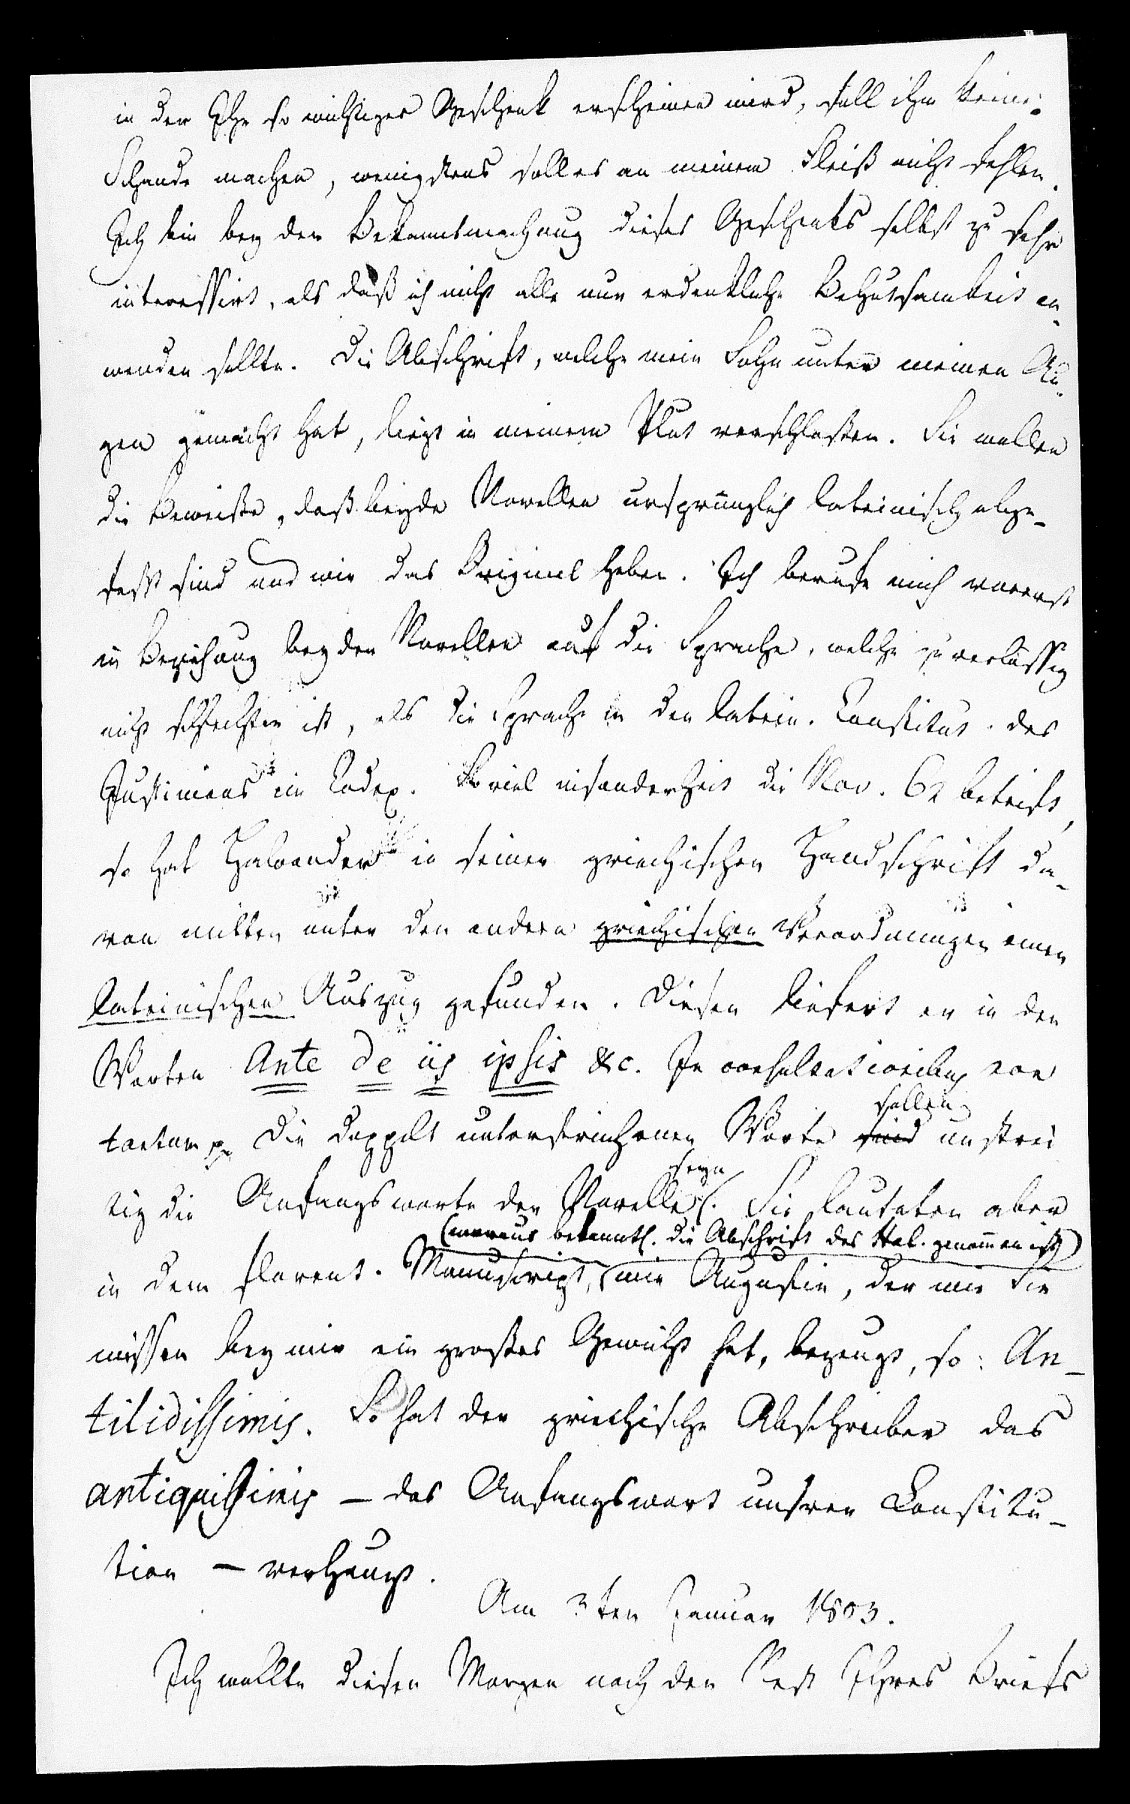 in der Ehe so wichtiges Geschenk erscheinen wird, soll ihm keine
Schande machen, wenigstens soll es an meinem Fleiß nicht fehlen.
Ich bin bey der Bekanntmachung dieses Geschenks selbst zu sehr
interessirt, als daß ich nicht alle nur erdenkliche Behutsamkeit an-
wenden sollte. Die Abschrift, welche mein Sohn unter meinen Au-
gen gemacht hat, liegt in meinem Pult verschloßen. Sie wollen
die Beweise, daß beyde Novellen ursprünglich lateinisch abge-
faßt sind und wir das Original haben. Ich berufe mich vorerst
in Beziehung beyder Novellen auf die Sprache, welche zuverlässig
nicht schlechter ist, als die Sprache in den latein. Constitut. des
Justinians im Codex. Soviel insonderheit die Nov. 62 betrift,
so hat Haloander in seiner griechischen Handschrift da-
von mitten unter den andern griechischen Verordnungen einen
lateinischen Auszug gefunden. Diesen liefert er in den
Worten Ante de iis ipsis &c. In consultationibus
tantum pp. Die doppelt unterstrichenen Worte sind sollen unstrei
tig die Anfangsworte der Novelle seyn. Sie lauteten aber
(woraus bekanntl. die Abschrift des Hal. genommen ist)
in dem florent. Manuscript, wie Augustin, der wie Sie
wissen bey mir ein großes Gewicht hat, bezeugt, so: An-
tilidissimis. So hat der griechische Abschreiber das
antiquissimis – das Anfangswort unsrer Constitu-
tion – verhunzt.
Am 3ten Januar 1803.
Ich wollte diesen Morgen noch den Rest Ihres Briefs